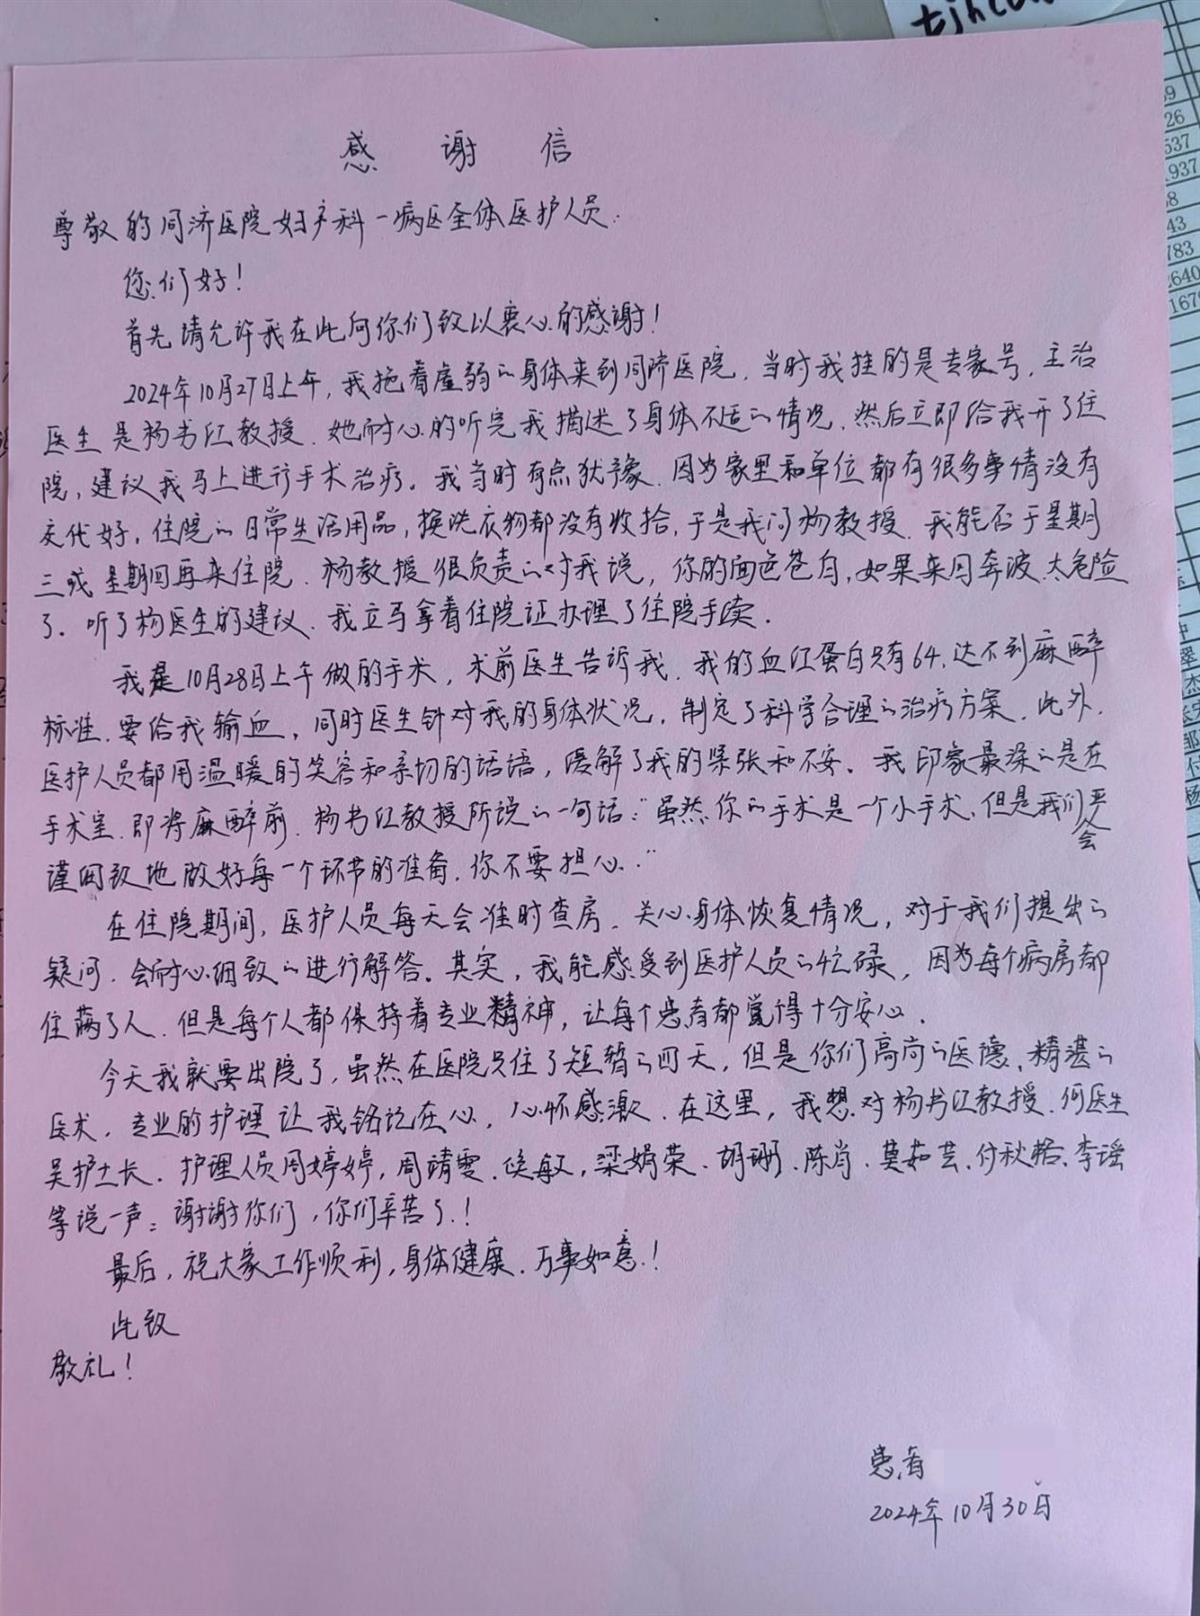 感谢信
尊敬的同济医院妇产科一病区全体医护人员:
您们好!
首先请允许我在此向你们致以衷心的感谢!
2024年10月27日上午,我拖着虚弱的身体来到同济医院,当时我挂的是专家号,主治
医生是杨书红教授.她耐心的听完我描述了身体不适的情况,然后立即给我开了住
院,建议我马上进行手术治疗。我当时有点犹豫,因为家里和单位都有很多事情没有
交代好,住院的日常生活用品,换洗衣物都没有收拾,于是我问杨教授,我能否于星期
三或星期四再来住院.杨教授很负责的对我说,你的面色苍白,如果来回奔波,太危险
了.听了杨医生的建议,我立马拿着住院证办理了住院手续.
我是10月28日上午做的手术,术前医生告诉我,我的血红蛋白只有64,达不到麻醉
标准,要给我输血,同时医生针对我的身体状况,制定了科学合理的治疗方案,此外,
医护人员都用温暖的笑容和亲切的话语,缓解了我的紧张和不安。我印象最深的是在
手术室,即将麻醉前,杨书红教授所说的一句话:"虽然你的手术是一个小手术,但是我们会严
谨细致地做好每一个环节的准备,你不要担心."
在住院期间,医护人员每天会准时查房,关心身体恢复情况,对于我们提出的
疑问,会耐心细致的进行解答。其实,我能感受到医护人员的忙碌,因为每个病房都
住满了人,但是每个人都保持着专业精神,让每个患者都觉得十分安心.
今天我就要出院了,虽然在医院只住了短暂的四天,但是你们高尚的医德、精湛的
医术,专业的护理让我铭记在心,心怀感激.在这里,我想对杨书红教授、何医生
吴护士长、护理人员周婷婷,周靖雯、侯敏,梁娟荣、胡珊、陈肖、莫茹芸、付秋、李瑶
等说一声:谢谢你们,你们辛苦了!
最后,祝大家工作顺利,身体健康,万事如意!
此致
敬礼!
患者
2024年10月30日